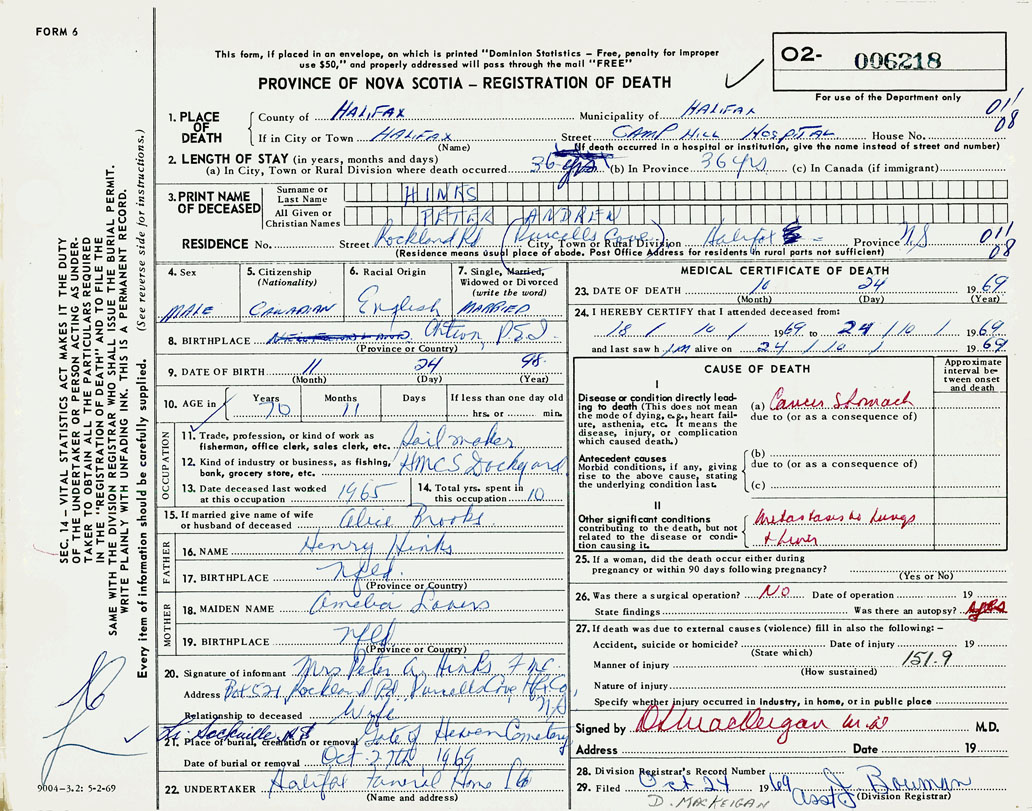 FORM 6
This form, if placed in an envelope, on which is printed "Dominion Statistics – Free, penalty for improper
use $50," and properly addressed will pass through the mail "FREE"
PROVINCE OF NOVA SCOTIA – REGISTRATION OF DEATH
O2- 006218
For use of the Department only
011
08
1. PLACE OF DEATH
County of HALIFAX Municipality of HALIFAX
If in City or Town HALIFAX Street CAMP HILL HOSPITAL House No.
(Name) (If death occurred in a hospital or institution, give the name instead of street and number)
2. LENGTH OF STAY (in years, months and days)
(a) In City, Town or Rural Division where death occurred 36 yrs (b) In Province 36 yrs (c) In Canada (if immigrant)
3. PRINT NAME OF DECEASED
Surname or Last Name HINKS
All Given or Christian Names PETER ANDREW
RESIDENCE No. Street Rockland Rd (Purcells Cove) Halifax Province N.S 011
City, Town or Rural Division
(Residence means usual place of abode. Post Office Address for residents in rural parts not sufficient) 08
4. Sex MALE
5. Citizenship (Nationality) CANADIAN
6. Racial Origin English
7. Single, Married, Widowed or Divorced (write the word) MARRIED
8. BIRTHPLACE P.E.I.
(Province or Country)
9. DATE OF BIRTH 11 24 98
(Month) (Day) (Year)
10. AGE in Years 70 Months 11 Days If less than one day old hrs. or min.
OCCUPATION
11. Trade, profession, or kind of work as fisherman, office clerk, sales clerk, etc. Sail maker
12. Kind of industry or business, as fishing, bank, grocery store, etc. HMCS Dockyard
13. Date deceased last worked at this occupation 1965
14. Total yrs. spent in this occupation 10
15. If married give name of wife or husband of deceased Alice Brooks
FATHER
16. NAME Henry Hinks
17. BIRTHPLACE Nfld.
(Province or Country)
MOTHER
18. MAIDEN NAME Amelia
19. BIRTHPLACE Nfld
(Province or Country)
20. Signature of informant Mrs Peter A. Hinks
Address Box 521 Rockland Rd Purcells Cove Hfx Co, N.S
Relationship to deceased Wife
Sackville N.S
21. Place of burial, cremation or removal Gate of Heven Cemetery
Date of burial or removal Oct 27th 1969
22. UNDERTAKER Halifax Funeral Home
(Name and address)
MEDICAL CERTIFICATE OF DEATH
23. DATE OF DEATH 10 24 1969
(Month) (Day) (Year)
24. I HEREBY CERTIFY that I attended deceased from:
18 / 10 / 1969 to 24 / 10 / 1969
and last saw him alive on 24 / 10 / 1969
CAUSE OF DEATH
Approximate interval between onset and death
I
Disease or condition directly leading to death (This does not mean the mode of dying, e.g., heart failure, asthenia, etc. It means the disease, injury, or complication which caused death.)
(a) Cancer Stomach
due to (or as a consequence of)
Antecedent causes
Morbid conditions, if any, giving rise to the above cause, stating the underlying condition last.
(b)
due to (or as a consequence of)
(c)
II
Other significant conditions contributing to the death, but not related to the disease or condition causing it.
Metastases to Lungs
+ Liver
25. If a woman, did the death occur either during pregnancy or within 90 days following pregnancy?
(Yes or No)
26. Was there a surgical operation? NO Date of operation 19
State findings Was there an autopsy? Yes
27. If death was due to external causes (violence) fill in also the following: –
Accident, suicide or homicide? Date of injury 19
(State which)
Manner of injury 151.9
(How sustained)
Nature of injury
Specify whether injury occurred in industry, in home, or in public place
Signed by MacKeigan M.D M.D.
Address Date 19
28. Division Registrar's Record Number
29. Filed Oct 24 1969 Asst J. Bowman
(Division Registrar)
D. MACKEIGAN
SEC. 14 – VITAL STATISTICS ACT MAKES IT THE DUTY
OF THE UNDERTAKER OR PERSON ACTING AS UNDER-
TAKER TO OBTAIN ALL THE PARTICULARS REQUIRED
IN THE "REGISTRATION OF DEATH" AND TO FILE THE
SAME WITH THE DIVISION REGISTRAR WHO SHALL ISSUE THE BURIAL PERMIT.
WRITE PLAINLY WITH UNFADING INK. THIS IS A PERMANENT RECORD.
Every item of information should be carefully supplied. (See reverse side for instructions.)
9004-3.2: 5-2-69